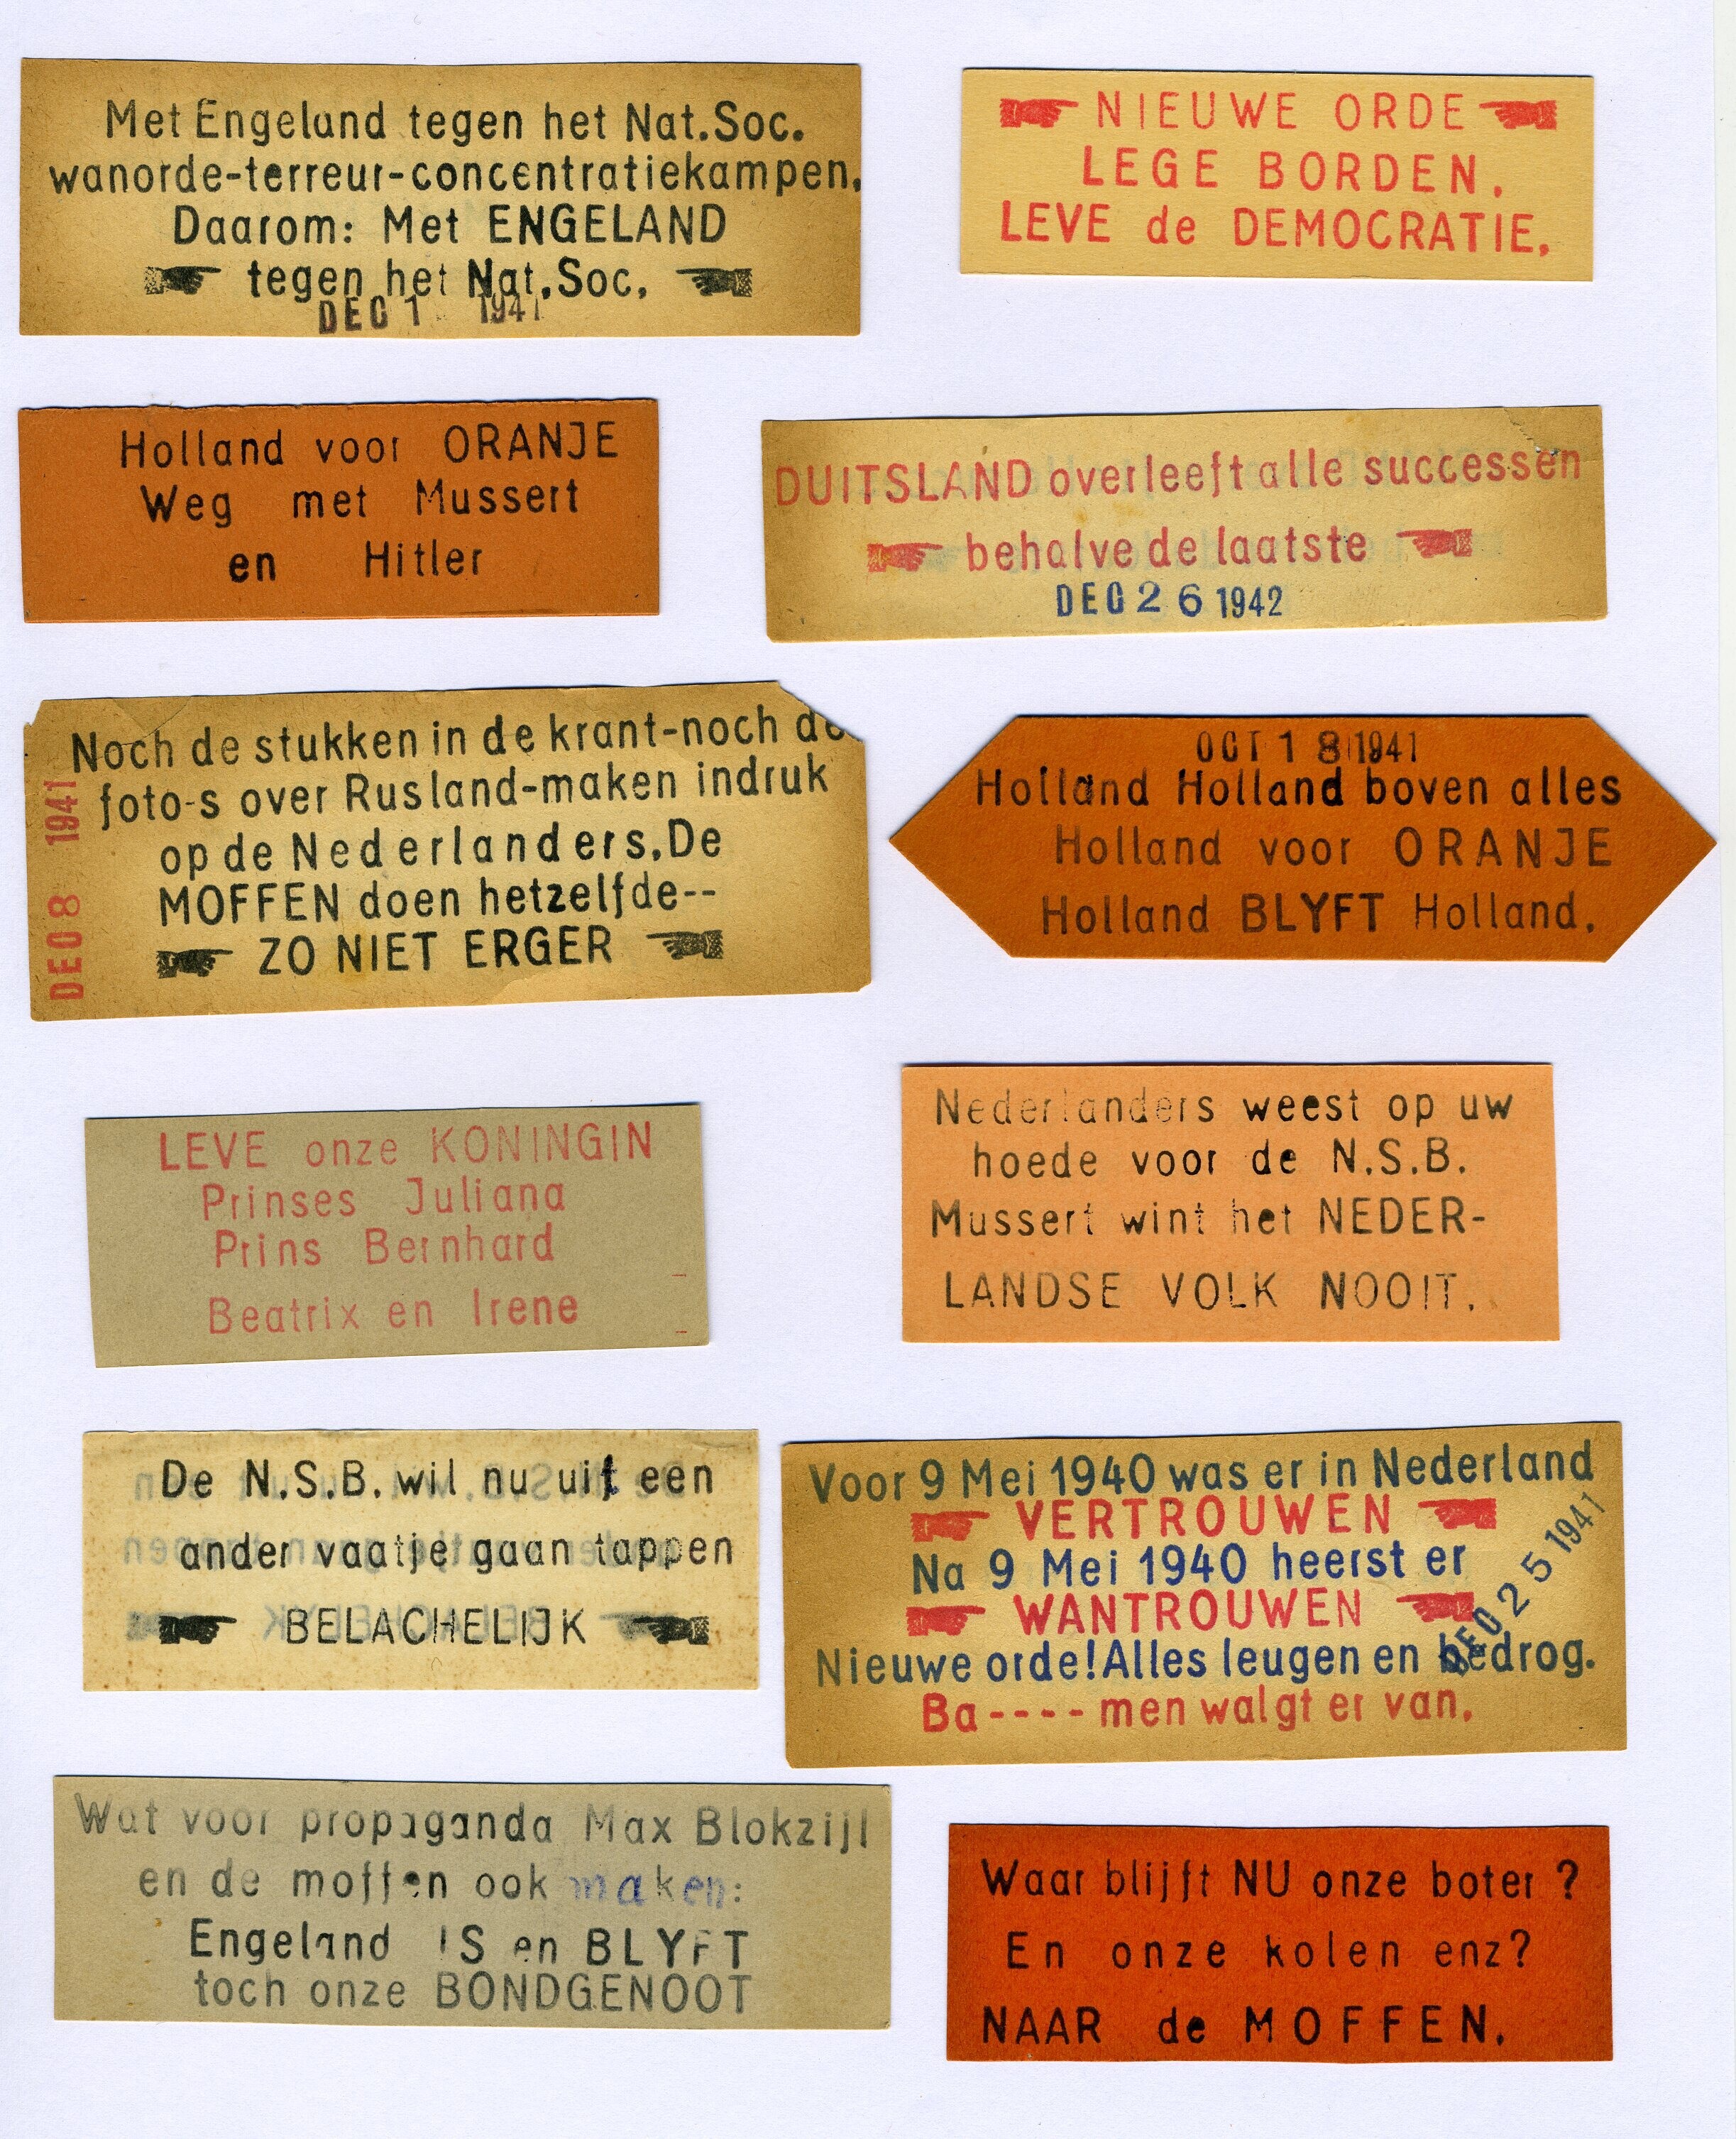 Met Engeland tegen het Nat.Soc.
wanorde-terreur-concentratiekampen.
Daarom: Met ENGELAND
tegen het Nat.Soc.
DEC 1 1941
NIEUWE ORDE
LEGE BORDEN.
LEVE de DEMOCRATIE.
Holland voor ORANJE
Weg met Mussert
en Hitler
DUITSLAND overleeft alle successen
behalve de laatste
DEC 26 1942
Noch de stukken in de krant-noch de
foto-s over Rusland-maken indruk
op de Nederlanders.De
MOFFEN doen hetzelfde--
ZO NIET ERGER
DEC 8 1941
OCT 18 1941
Holland Holland boven alles
Holland voor ORANJE
Holland BLYFT Holland.
LEVE onze KONINGIN
Prinses Juliana
Prins Bernhard
Beatrix en Irene
Nederlanders weest op uw
hoede voor de N.S.B.
Mussert wint het NEDER-
LANDSE VOLK NOOIT.
De N.S.B. wil nu uit een
ander vaatje gaan tappen
BELACHELIJK
Voor 9 Mei 1940 was er in Nederland
VERTROUWEN
Na 9 Mei 1940 heerst er
WANTROUWEN
Nieuwe orde!Alles leugen en bedrog.
Ba---- men walgt er van.
DEC 25 1941
Wat voor propaganda Max Blokzijl
en de moffen ook maken:
Engeland IS en BLYFT
toch onze BONDGENOOT
Waar blijft NU onze boter ?
En onze kolen enz?
NAAR de MOFFEN.